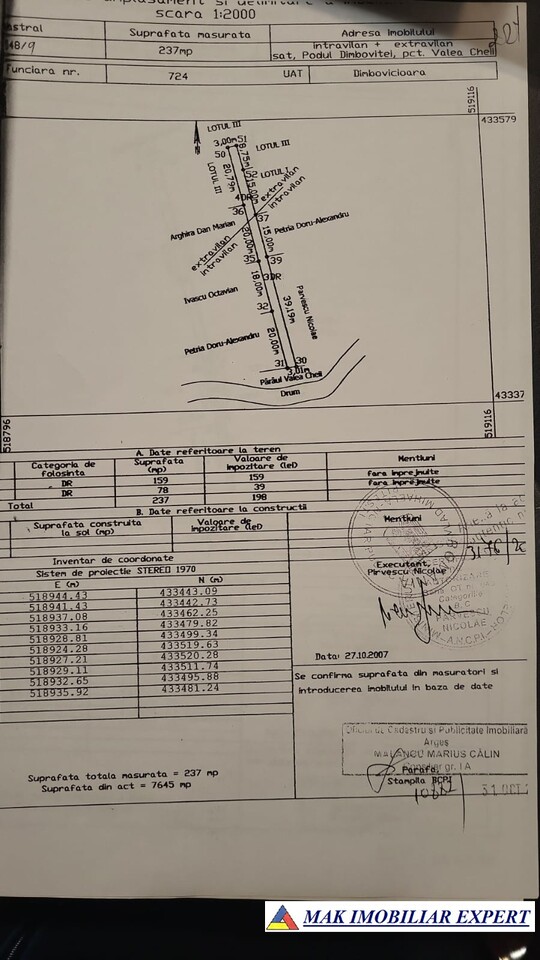 scara 1:2000
Suprafata masurata
Adresa Imobilului
48/9
237mp
intravilan + extravilan
sat, Podul Dimbovitei, pct. Valea Cheii
funciara nr.
724
UAT
Dimbovicioara
519116
433579
LOTUL III
3,00m
51
50
8,75m
LOTUL III
LOTUL III
20,79m
52
LOTUL I
15,00m
36
extravilan
intravilan
37
Arghira Dan Marian
Petria Doru-Alexandru
15,00m
20,00m
extravilan
intravilan
35
39
18,00m
Ivascu Octavian
39,19m
Parvescu Nicolae
32
20,00m
Petria Doru-Alexandru
31
30
3,01m
Pârâul Valea Cheii
Drum
43337
518796
519116
A. Date referitoare la teren
Categoria de folosinta
Suprafata (mp)
Valoare de impozitare (lei)
Mentiuni
DR
159
159
fara imprejmuite
DR
78
39
fara imprejmuite
Total
237
198
B. Date referitoare la constructii
Suprafata construita la sol (mp)
Valoare de impozitare (lei)
Mentiuni
Inventar de coordonate
Sistem de proiectie STEREO 1970
E (m)
N (m)
518944.43
433443.09
518941.43
433442.73
518937.08
433462.25
518933.16
433479.82
518928.81
433499.34
518924.28
433519.63
518927.21
433520.28
518929.11
433511.74
518932.65
433495.88
518935.92
433481.24
Executant,
Pirvescu Nicolae
PARVESCU
NICOLAE
Data: 27.10.2007
Se confirma suprafata din masuratori si
introducerea imobilului in baza de date
Oficiul de Cadastru și Publicitate Imobiliară
Argeș
MALANCU MARIUS CĂLIN
Consilier gr. I A
Parafa,
Stampila BCPI
Suprafata totala masurata = 237 mp
Suprafata din act = 7645 mp
MAK IMOBILIAR EXPERT